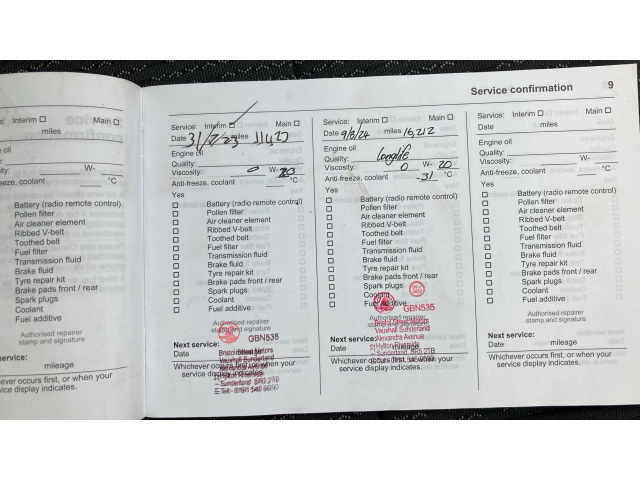 Service confirmation 9
e: Interim ☐ Main ☐
miles
e oil
y:
sity: W-
eeze, coolant °C
Battery (radio remote control)
Pollen filter
Air cleaner element
Ribbed V-belt
Toothed belt
Fuel filter
Transmission fluid
Brake fluid
Tyre repair kit
Brake pads front / rear
Spark plugs
Coolant
Fuel additive
Authorised repairer
stamp and signature
service:
mileage
ever occurs first, or when your
vice display indicates.
Service: Interim ☐ Main ☐
Date 31/7/23 miles
Engine oil
Quality:
Viscosity: 0 W- 20
Anti-freeze, coolant °C
Yes
☐ Battery (radio remote control)
☐ Pollen filter
☐ Air cleaner element
☐ Ribbed V-belt
☐ Toothed belt
☐ Fuel filter
☐ Transmission fluid
☐ Brake fluid
☐ Tyre repair kit
☐ Brake pads front / rear
☐ Spark plugs
☐ Coolant
☐ Fuel additive
Authorised repairer
stamp and signature
GBN535
Next service:
Date mileage
Bristol Street Motors
Vauxhall Sunderland
Whichever occurs first, or when your
service display indicates.
Sunderland SR5 2TB
Service: Interim ☐ Main ☐
Date 9/8/24 miles 16,212
Engine oil
Quality: longlife
Viscosity: 0 W- 20
Anti-freeze, coolant -31 °C
Yes
☐ Battery (radio remote control)
☐ Pollen filter
☐ Air cleaner element
☐ Ribbed V-belt
☐ Toothed belt
☐ Fuel filter
☐ Transmission fluid
☐ Brake fluid
☐ Tyre repair kit
☐ Brake pads front / rear
☐ Spark plugs
☐ Coolant
☐ Fuel additive
GBN535
Authorised repairer
stamp and signature
Bristol Street Motors
Vauxhall Sunderland
Alexandra Avenue
Next service:
Date mileage
Hylton Riverside
Sunderland SR5 2TB
Whichever occurs first, or when your
service display indicates.
Service: Interim ☐ Main ☐
Date miles
Engine oil
Quality:
Viscosity: W-
Anti-freeze, coolant °C
Yes
☐ Battery (radio remote control)
☐ Pollen filter
☐ Air cleaner element
☐ Ribbed V-belt
☐ Toothed belt
☐ Fuel filter
☐ Transmission fluid
☐ Brake fluid
☐ Tyre repair kit
☐ Brake pads front / rear
☐ Spark plugs
☐ Coolant
☐ Fuel additive
Authorised repairer
stamp and signature
Next service:
Date mileage
Whichever occurs first, or when your
service display indicates.